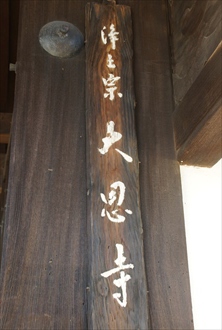 浄土宗大恩寺